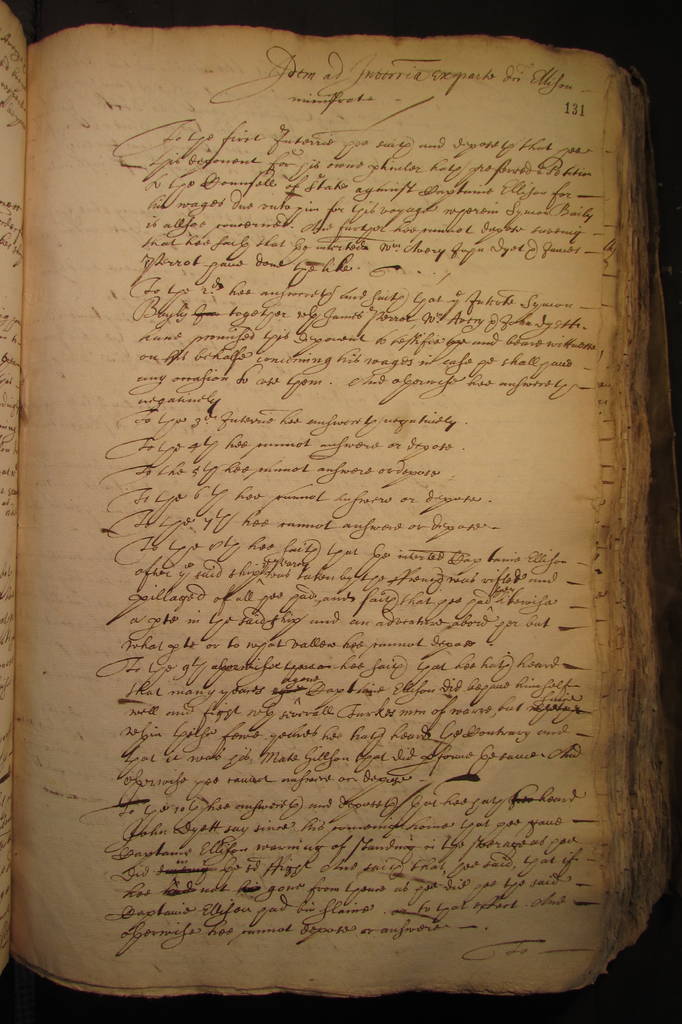 Idem ad Interria ex parte dci Ellison
ministrata
131
To the first Interrie hee saith and deposeth that hee
this deponent for his owne hath preferred a Petition
to the Counsell of State against Captaine Ellison for
his wages due unto him for this voyage wherein Symon Baily
is allsoe concerned. And further hee cannot depose saveing
that hee saith that the interrate Wm Avery John Dyet & James
Perrot have done the like.
To the 2d hee answereth and saith that ye Interrte Symon
Bayly together with James Perrot Wm Avery & John Dyett
have promised this deponent to testifie and beare wittnesse
on his behalfe concerning his wages in case he shall have
any occasion to use them. And otherwise hee answereth
negatively
To the 3d Interrie hee answereth negatively.
To the 4th hee cannot answere or depose.
To the 5th hee cannot answere or depose.
To the 6th hee cannot answere or depose.
To the 7th hee cannot answere or depose
To the 8th hee saith that the interrted Captaine Ellison
after ye said ship was taken by the ffrench was rifled and
pillaged of all hee had, and saith that hee had likewise
a pte in the said ship and an adventure abord her but
what pte or to what vallew hee cannot depose
To the 9th hee saith that hee hath heard
that many yeares agone Captaine Ellison did behave himselfe
well and fight with severall Turkes men of warre, but
within these fewe hee hath heard the contrary and
that it was his Mate Gillson that did the same And
otherwise hee cannot answere or depose
To the 10th hee answereth and deposeth that hee hath heard
John Dyett say since his comeing home that hee gave
Captaine Ellison warning of standing in the steerage as hee
did the sd fight And saith that hee said, that if
hee had not gone from thence as hee did hee the said
Captaine Ellison had bin slaine or to that effect. And
otherwise hee cannot depose or answere
To